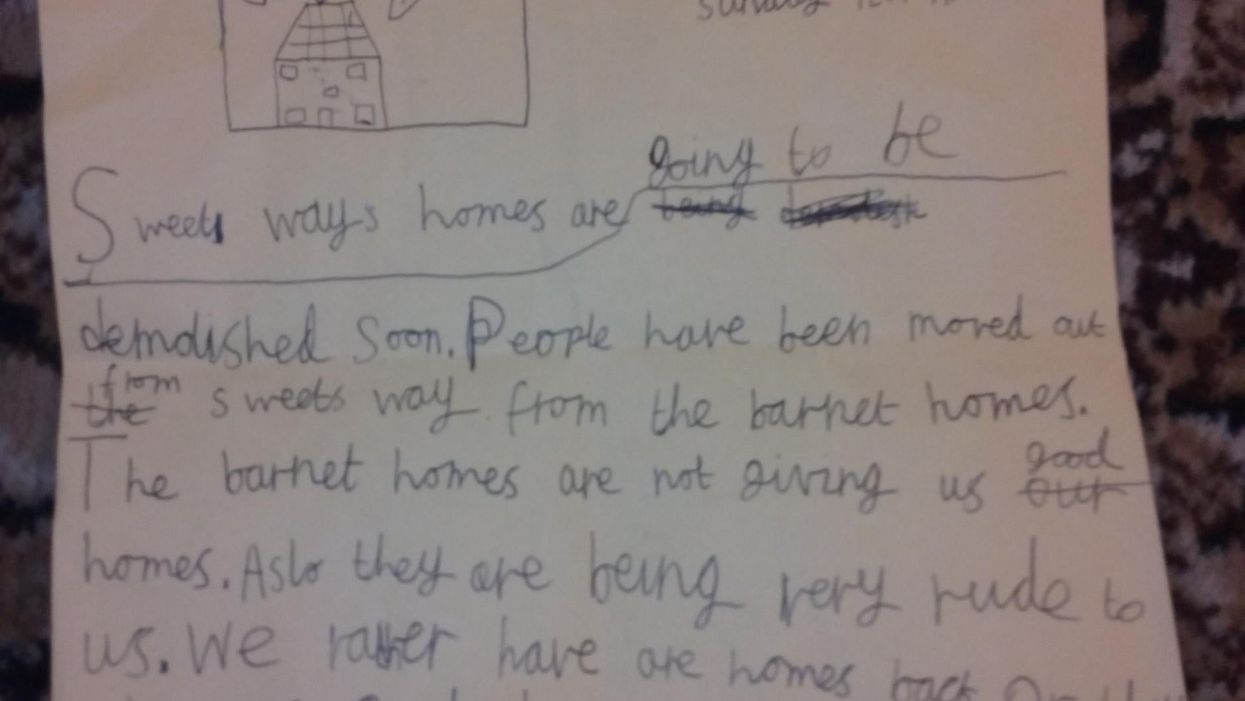 sunday
going to be
Sweets ways homes are being
demolished soon. People have been moved out
from
the sweets way from the barnet homes.
The barnet homes are not giving us good
our
homes. Aslo they are being very rude to
us. We rather have are homes back